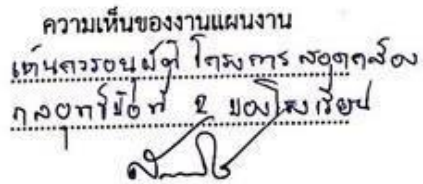 ความเห็นของงานแผนงาน
เห็นควรอนุมัติ โครงการ สอดคล้อง
กลยุทธ์ข้อที่ 2 ของโรงเรียน